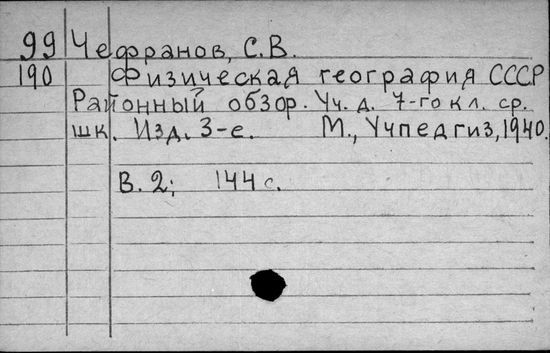 99 Чефранов, С.В.
190 Физическая география СССР
Районный обзор. Уч. д. 7-го кл. ср.
шк. Изд. 3-е. М., Учпедгиз, 1940.
В. 2; 144 с.